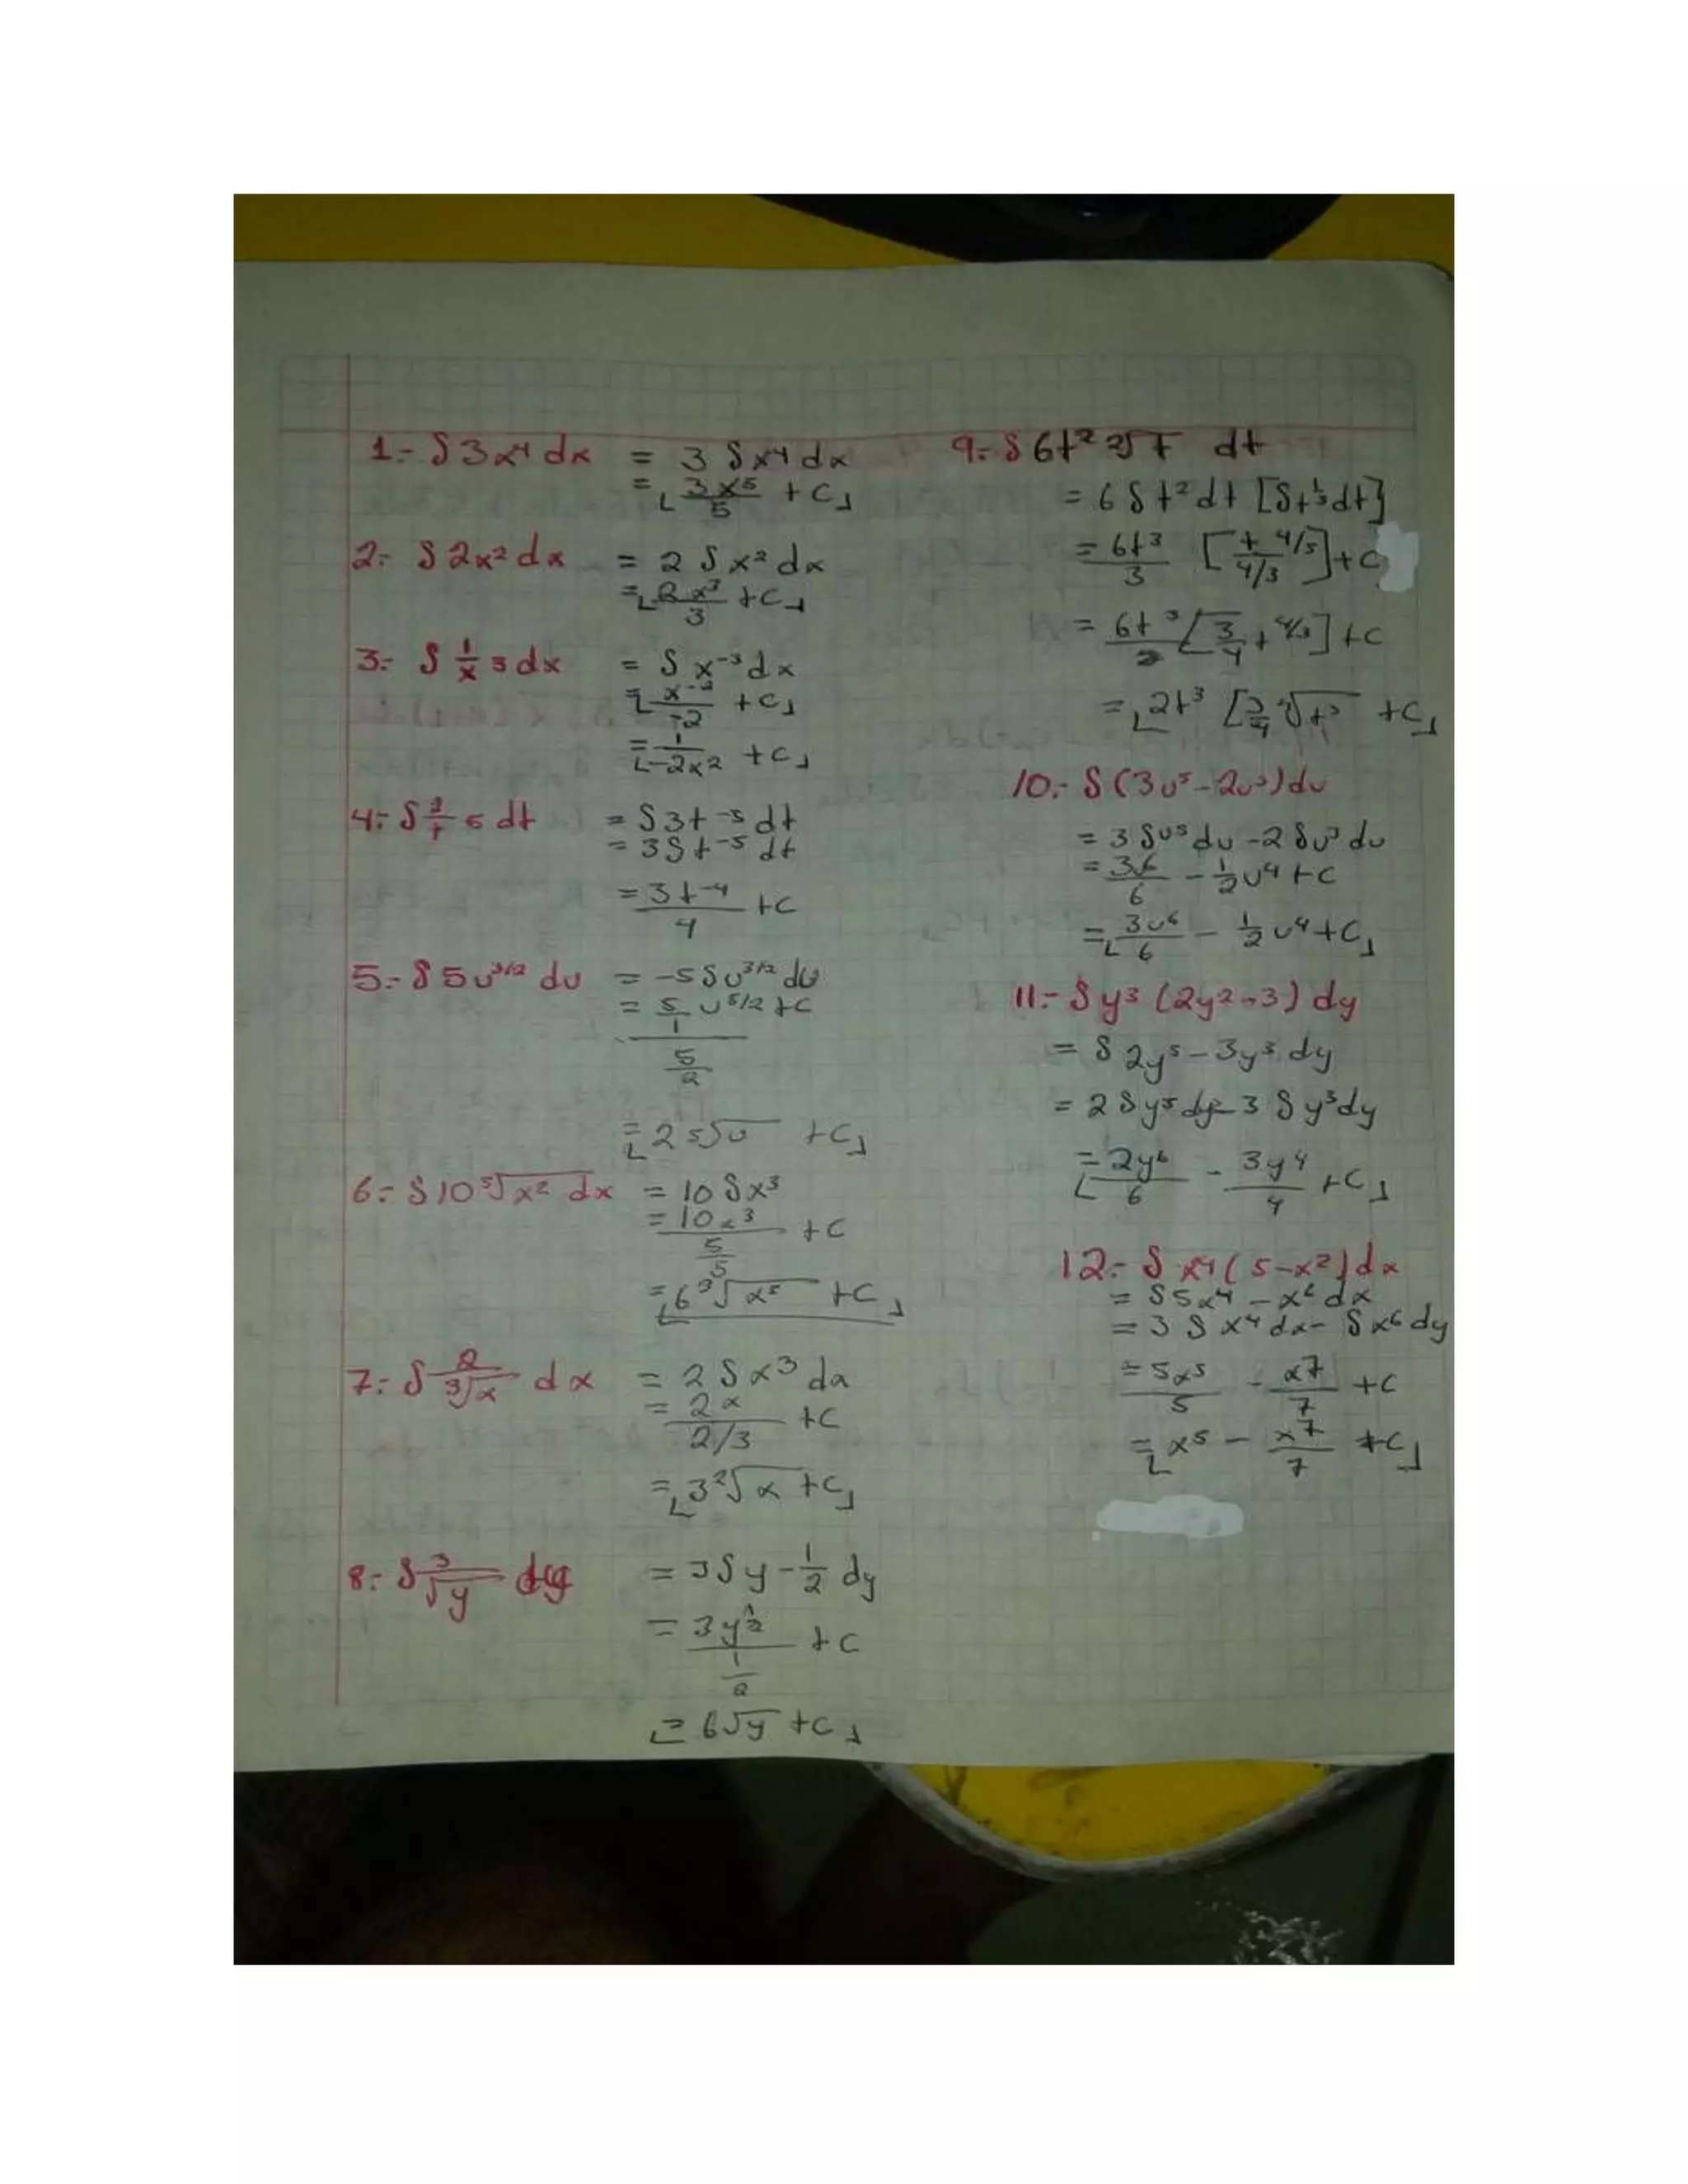 1.- ∫ 3x⁴ dx = 3 ∫ x⁴ dx
= 3x⁵/5 + C
2.- ∫ 2x² dx = 2 ∫ x² dx
= 2x³/3 + C
3.- ∫ 1/x 3 dx = ∫ x⁻³ dx
= x⁻²/-2 + C
= 1/-2x² + C
4.- ∫ 3/t 5 dt = ∫ 3t⁻⁵ dt
= 3 ∫ t⁻⁵ dt
= 3t⁻⁴/4 + C
5.- ∫ 5u^3/2 du = -5 ∫ u^3/2 du
= 5/1 u^5/2 + C
5/2
= 2 ⁵√u + C
6.- ∫ 10 ³√x² dx = 10 ∫ x³
= 10x³ / 5/5 + C
= 6 ³√x⁵ + C
7.- ∫ 2/³√x dx = 2 ∫ x³ dx
= 2x / 2/3 + C
= 3 ²√x + C
8.- ∫ 3/√y dy = 3 ∫ y - 1/2 dy
= 3y^1/2 / 1/2 + C
= 6√y + C
9.- ∫ 6t² ³√t dt
= 6 ∫ t² dt [∫ t^1/3 dt]
= 6t³/3 [t^4/3 / 4/3] + C
= 6t³/2 [3/4 t^4/3] + C
= 2t³ [3/4 ⁴√t³ + C
10.- ∫ (3u⁵ - 2u³) du
= 3 ∫ u⁵ du - 2 ∫ u³ du
= 3u⁶/6 - 1/2 u⁴ + C
= 3u⁶/6 - 1/2 u⁴ + C
11.- ∫ y³ (2y² - 3) dy
= ∫ 2y⁵ - 3y³ dy
= 2 ∫ y⁵ dy - 3 ∫ y³ dy
= 2y⁶/6 - 3y⁴/4 + C
12.- ∫ x⁴ (5 - x²) dx
= ∫ 5x⁴ - x⁶ dx
= 3 ∫ x⁴ dx - ∫ x⁶ dy
= 5x⁵/5 - x⁷/7 + C
= x⁵ - x⁷/7 + C